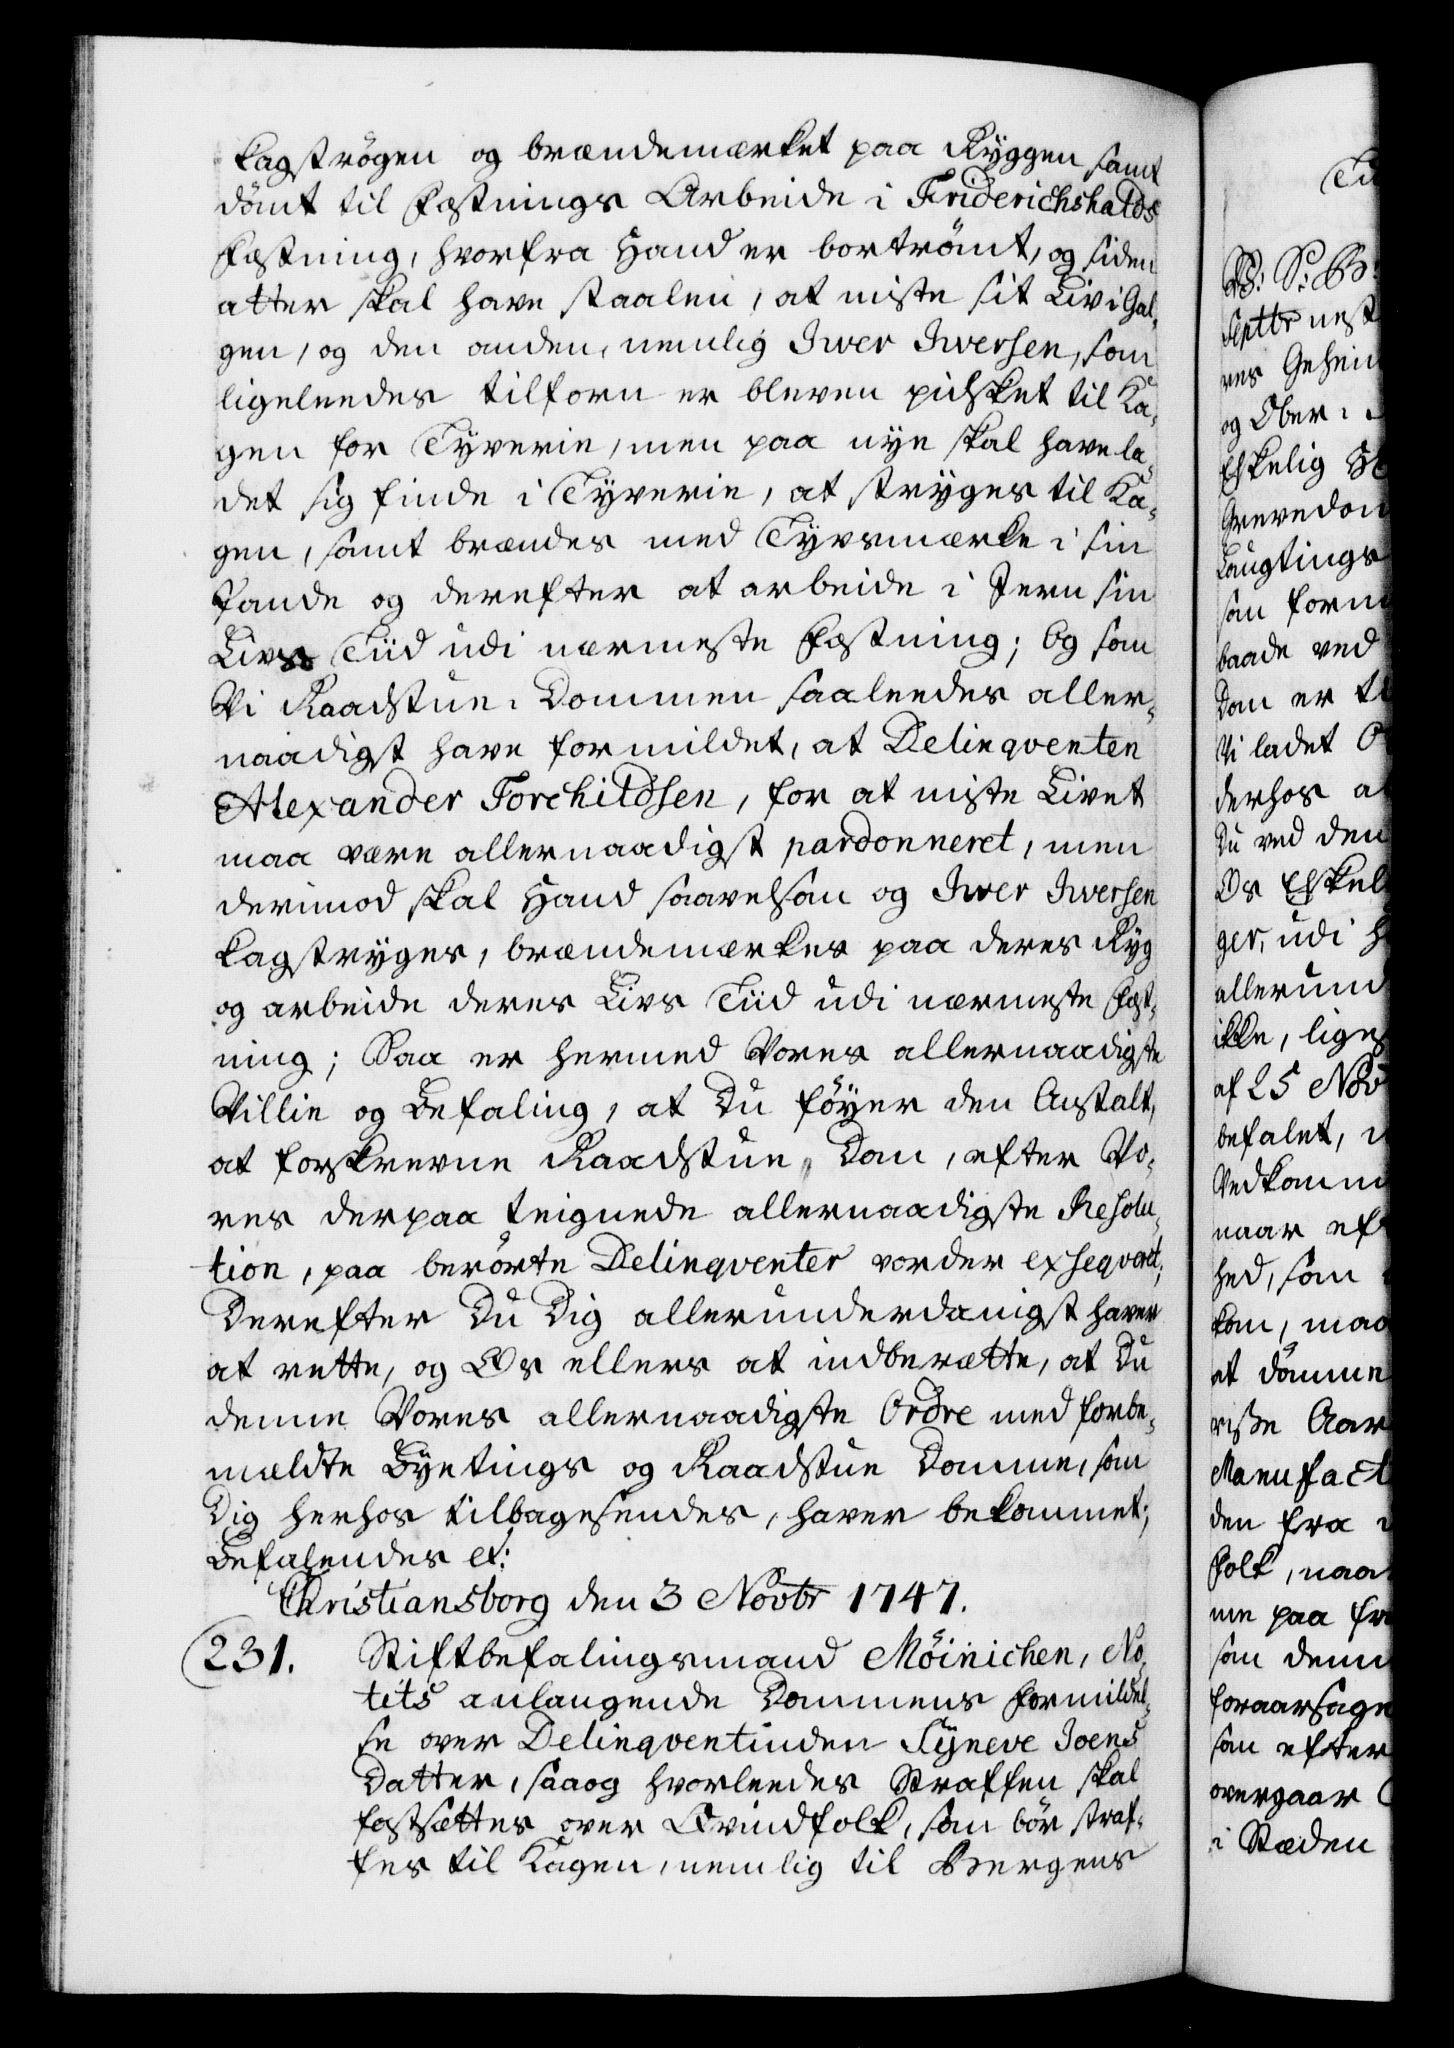 kagströgen og brændemærket paa Ryggen samt
dömt til Fæstnings Arbeide i Friderichshalds
Fæstning, hvorfra Hand er bortrömt, og siden
atter skal have staalen, at miste sit Liv i Gal-
gen, og den anden, nemlig Iwer Iwersen, som
ligeleedes tilforn er bleven pidsket til Ka-
gen for Tyverie, men paa nye skal have la-
det sig finde i Tyverie, at stryges til Ka-
gen, samt brændes med Tyvsmærke i sin
Pande og derefter at arbeide i Jern sin
Livs Tiid udi nærmeste Fæstning; Og som
Vi Raadstue-Dommen saaleedes aller-
naadigst have formildet, at Delinqventen
Alexander Torchildsen, for at miste Livet
maa være allernaadigst pardonneret, men
derimod skal Hand saavelsom og Iwer Iwersen
kagstryges, brændemærkes paa deres Ryg
og arbeide deres Livs Tiid udi nærmeste Fæst-
ning; Saa er hermed Vores allernaadigste
Villie og Befaling, at Du föyer den Anstalt,
at forskrevne Raadstue-Dom, efter Vo-
res derpaa teignede allernaadigste Resolu-
tion, paa berörte Delinqventer vorder exseqveret;
Derefter Du Dig allerunderdanigst haver
at rette, og Os ellers at indberette, at Du
denne Vores allernaadigste Ordre med forbe-
mældte Byetings og Raadstue Domme, som
Dig herhos tilbagesendes, haver bekommet;
Befalendes etc:
Christiansborg den 3 Novbr 1747.
231. Stiftbefalingsmand Möinichen, No-
tits anlangende Dommens Formildel-
se over Delinqventinden Syneve Joens
Datter, saaog hvorleedes Straffen skal
fastsættes over Qvindfolk, som bör straf-
fes til Kagen, nemlig til Bergens
Septbr nest
og Ober-
baade ved
Dom er
Vi ladet
derhos
Du ved den
Os
ger, udi
allerund
ikke, liges
af 25 Nov
befalet,
Vedkomm
naar
hed, som
kom, maa
at dömme
Aar
Manufact
den fra
Folk, naa
me paa
som denn
foraarsage
som efter
overgaar
i Stæden